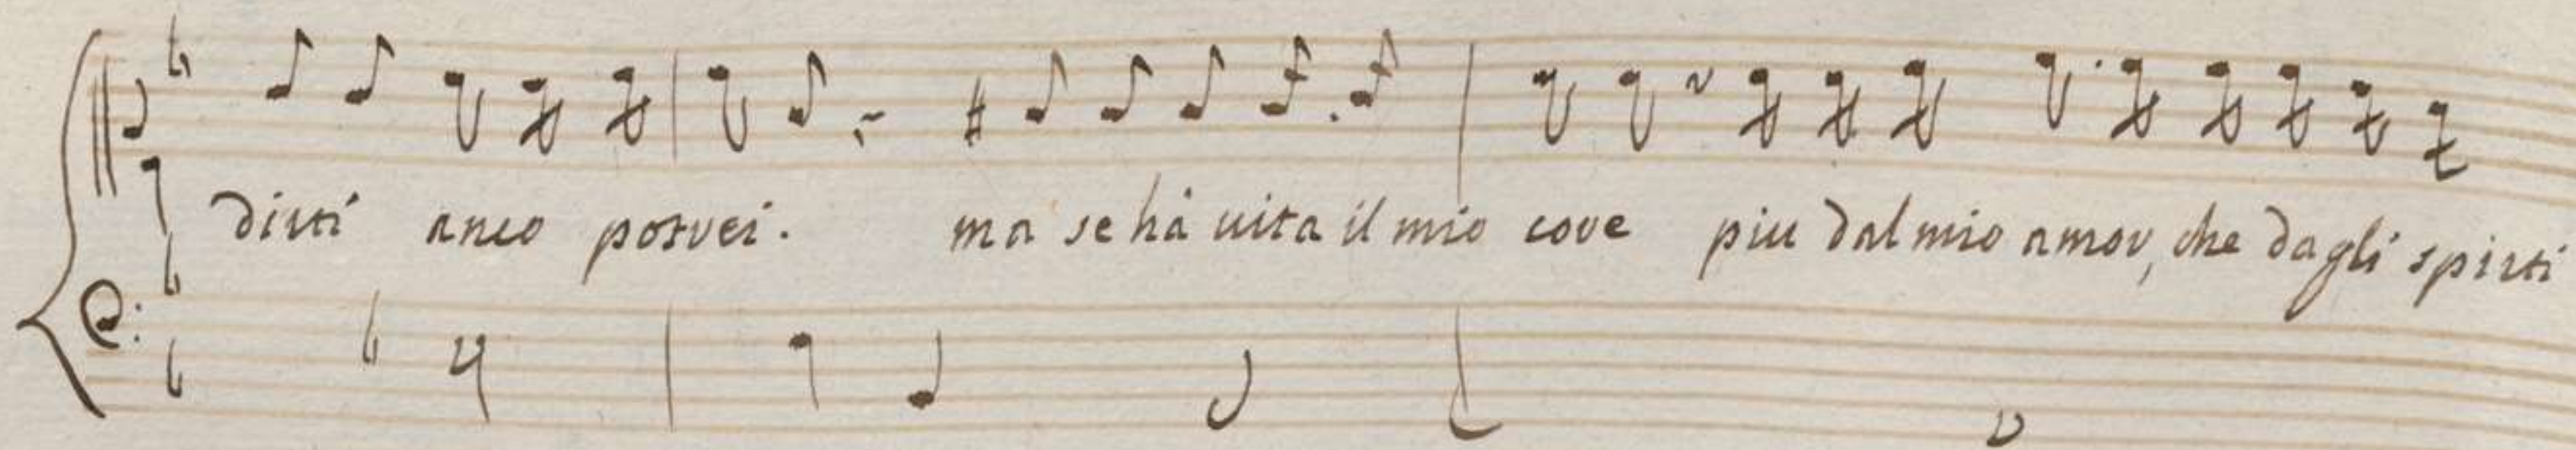 dirti anco potrei. ma se hà uita il mio core piu dal mio amor, che dagli spirti